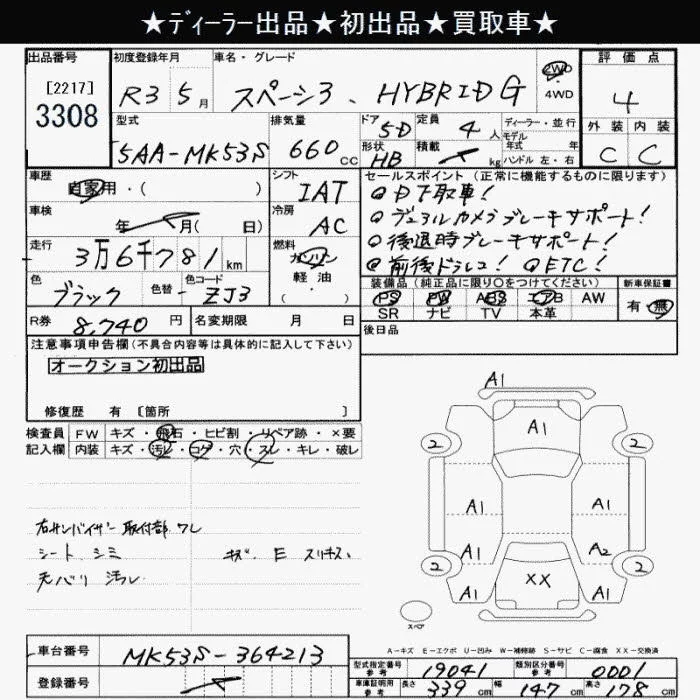 ★ディーラー出品★初出品★買取車★
出品番号 初度登録年月 車名・グレード 評価点
[2217]
3308
R3 5月 スペーシヨ、HYBRID G 2WD 4WD 4
型式 排気量 ドア 5D 定員 4人 ディーラー・並行 外装 内装
モデル年式 年
5AA-MK53S 660cc 形状 HB 積載 kg ハンドル 左・右 C C
車歴 自家用・( ) シフト IAT
セールスポイント(正常に機能するものに限ります)
◎ロ下取車!
車検 年 月( 日) 冷房 AC
◎デュアルカメラブレーキサポート!
走行 3万6千781km 燃料 ガソリン 軽・油 ・( )
◎後退時ブレーキサポート!
◎前後ドラレコ! ◎ETC!
色 ブラック 色替 色コード ZJ3
装備品(純正品に限り○をつけてください) 新車保証書
PS PW ABS エアB AW 有・無
SR ナビ TV 本革
R券 8,740円 名変期限 月 日
後日品
注意事項申告欄(不具合内容等は具体的に記入して下さい)
オークション初出品
修復歴 有 [箇所 ]
検査員 FW キズ・飛石・ヒビ割・リペア跡・×要
記入欄 内装 キズ・汚レ・コゲ・穴・スレ・キレ・破レ
右サンバイザー取付部ワレ
シート シミ キズ、E スリキズ、
天バリ 汚レ
A1
A1
2 2
A1 A1
A1 A2
2 2
A1 XX A1
スペア
A-キズ E-エクボ U-凹み W-補修跡 S-サビ C-腐食 XX-交換済
車台番号 MK53S-364213
登録番号
型式指定番号 参考 19041 類別区分番号 参考 0001
車庫証明用 参考 長さ 339cm 幅 147cm 高さ 178cm